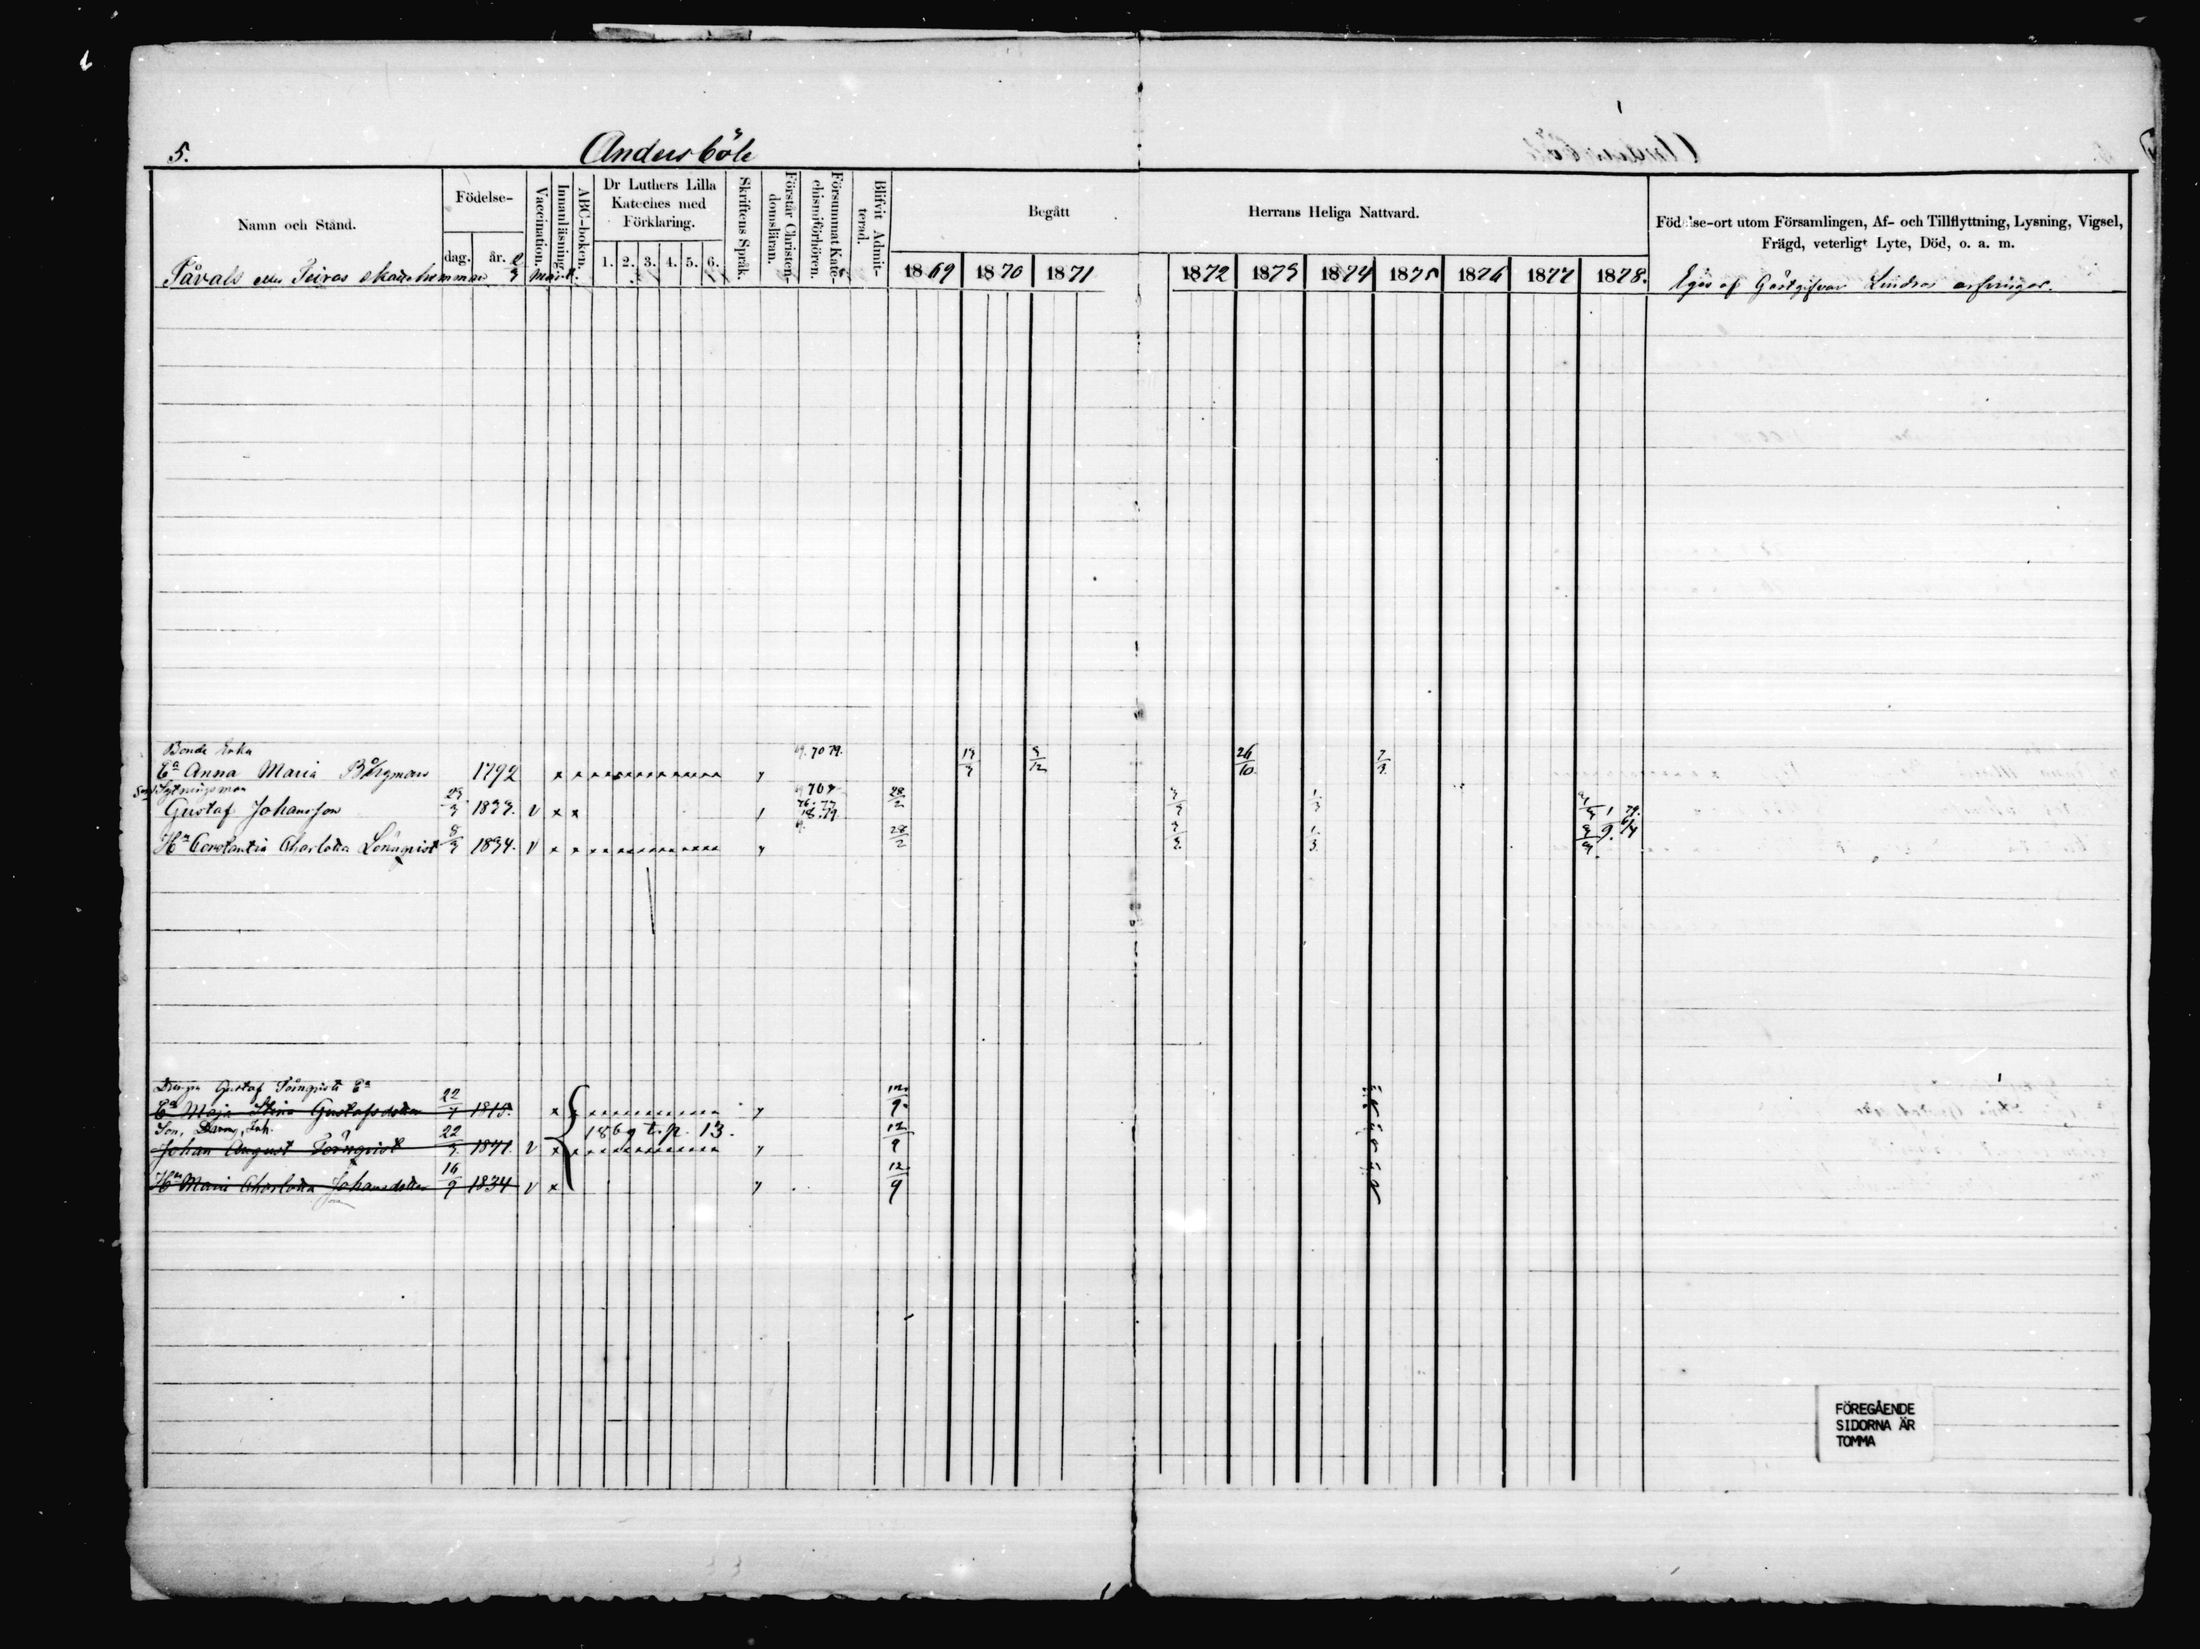 5.
Andersböle
Namn och Stånd.
Födelse-
dag.
år.
Vaccination.
Innanläsning.
ABC-boken.
Dr Luthers Lilla
Kateches med
Förklaring.
1. 2. 3. 4. 5. 6.
Skriftens Språk.
Förstår Christen-
domsläran.
Försummat Kate-
chismiförhören.
Blifvit Admit-
terad.
Begått
Herrans Heliga Nattvard.
1869 1870 1871
1872 1873 1874 1875 1876 1877 1878.
Födelse-ort utom Församlingen, Af- och Tillflyttning, Lysning, Vigsel,
Frägd, veterligt Lyte, Död, o. a. m.
Påvals eller Peiros skattehemman
Eges af Gästgifvar Lindros arfvingar.
Bonde Enka
Ea Anna Maria 1792 70 79. 26/10
Son, Sytningsman
Gustaf Johansson 1833. v x x 76. 77 28/2 1/3
Hu Constantia Charlotta Lönnqvist 8/3 1834. v 28/2 1/3
Drengen Gustaf Törnqvists Ea
Ea Maja Stina Gustafsdotter 22/7 1815. 12/9
Son, Joh.
1869 t. p. 13.
Johan August Törnqvist 22/3 1841. v 12/9
Hu Maria Charlotta Johansdotter 16/9 1834 v x 12/9
FÖREGÅENDE
SIDORNA ÄR
TOMMA